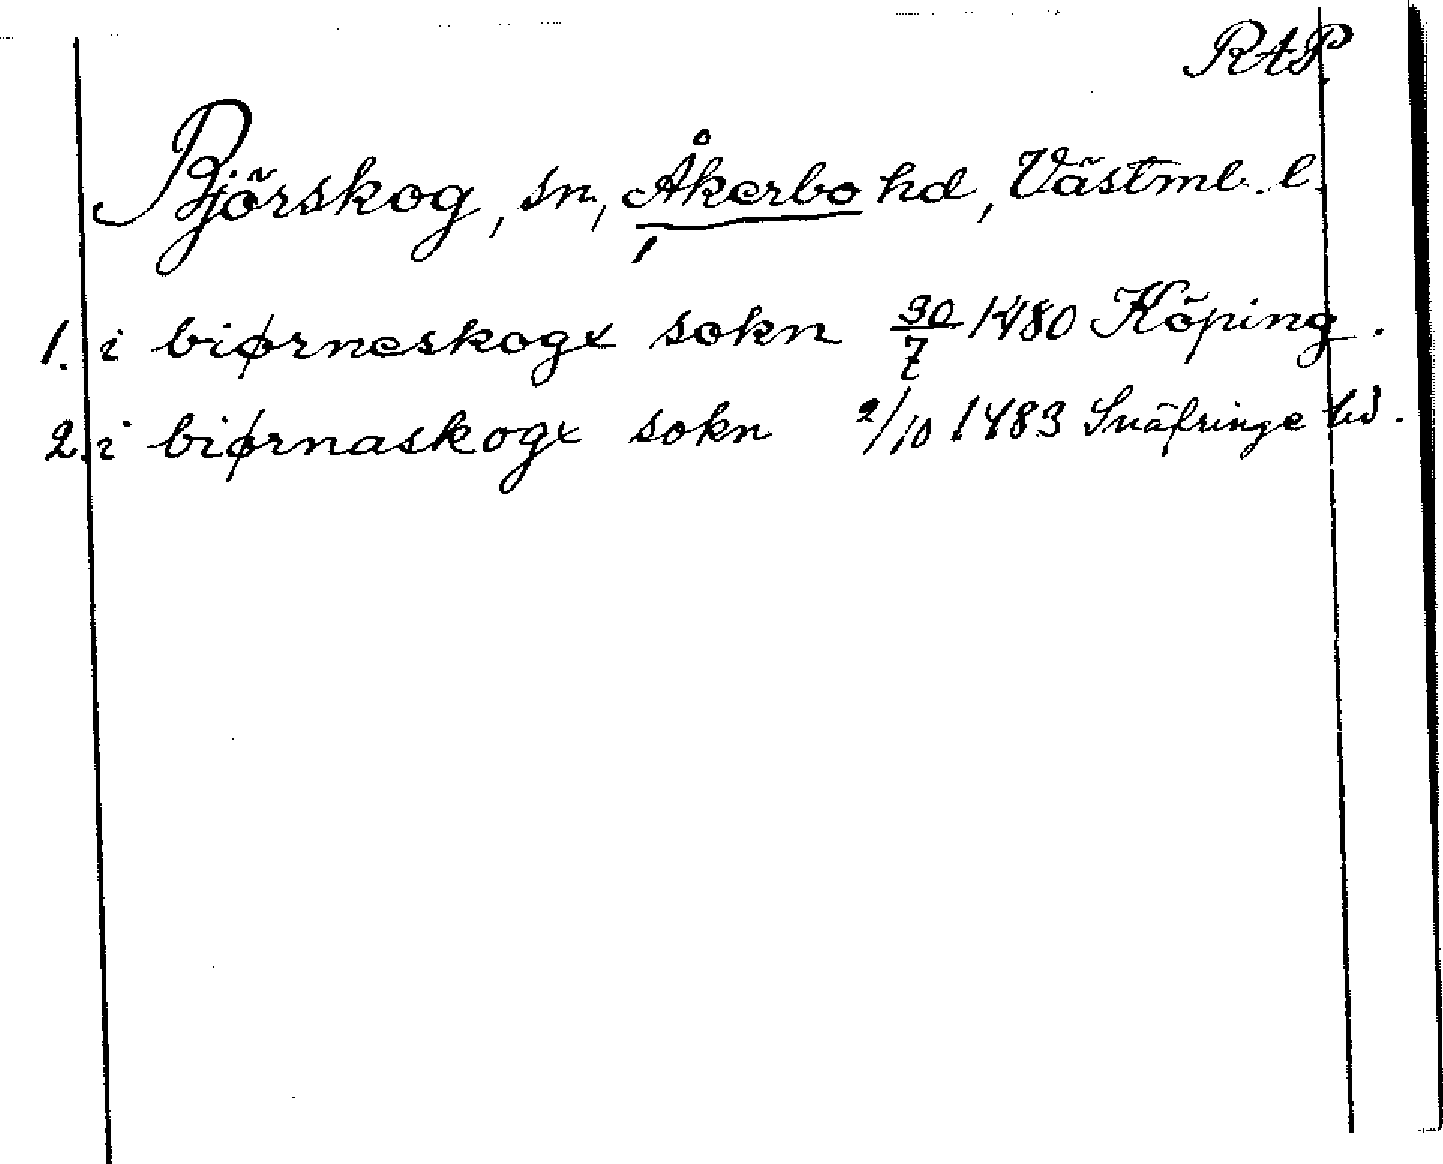 RAP.
Björskog, sn, Åkerbo hd, Västml. l.
1. i biørneskogx sokn 30/7 1480 Köping.
2. i biørnaskogx sokn 2/10 1483 Snäfringe hd.